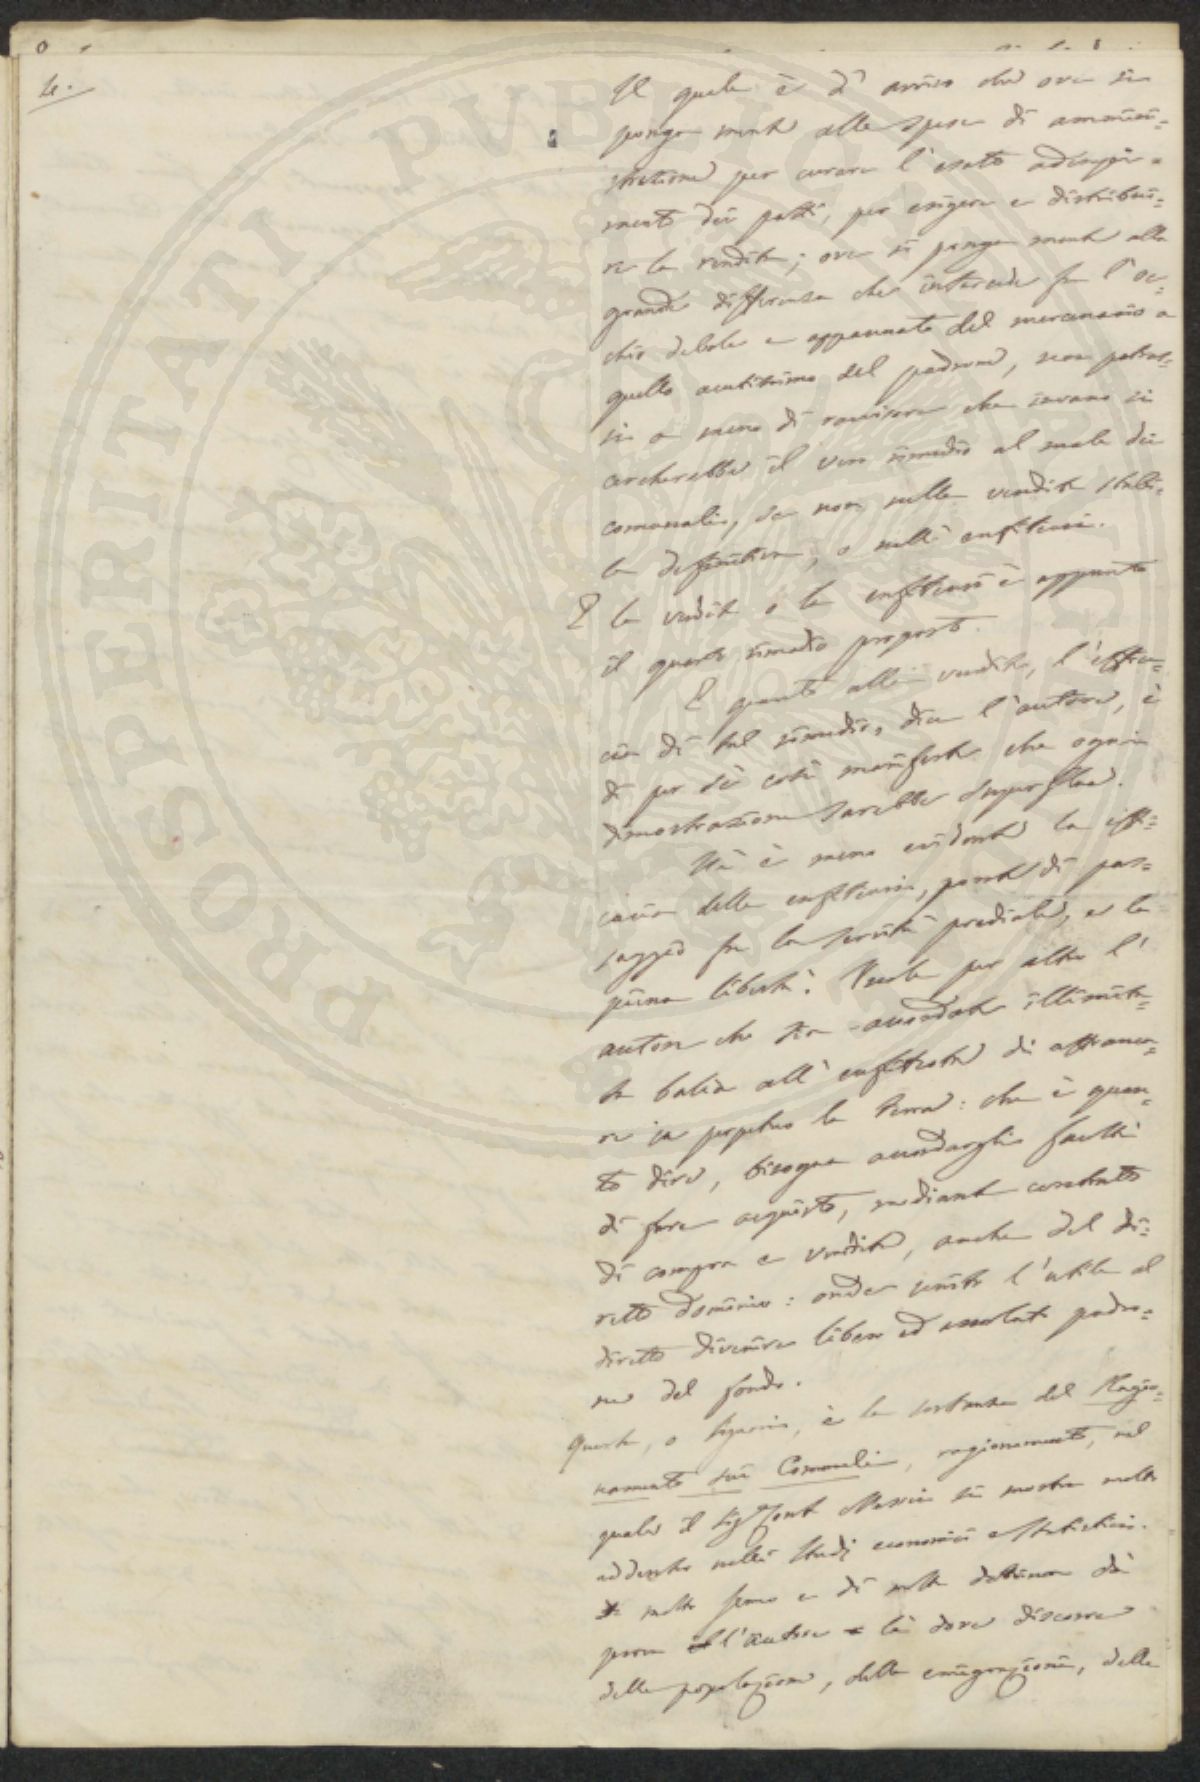 4.
Il quale è d'avviso che ove si
ponga mente alle spese di ammini=
strazione per curare l'esatto adempi=
mento dei patti, per esigere e distribui=
re la rendita; ove si ponga mente alla
grande differenza che intercede fra l'oc=
chio debole e appannato del mercenario a
quello acutissimo del padrone, non potras=
si a meno di ravvisare che invano si
cercherebbe il vero rimedio al male dei
comunali, se non nella vendita stabi=
le definitiva, o nell'enfiteusi.
E la vendita o la enfiteusi è appunto
il quarto rimedio proposto.
E quanto alla vendita, l'effica=
cia di tal rimedio, dice l'autore, è
di per sè così manifesta che ogni
dimostrazione sarebbe superflua.
Nè è meno evidente la effi=
cacia della enfiteusi, ponte di pas=
saggio fra la servitù prediale, e la
piena libertà. Vuole per altro l'
autore che sia accordata illimita=
ta balìa all'enfiteuta di affranca=
re in perpetuo la terra: che è quan=
to dire, bisogna accordargli facoltà
di fare acquisto, mediante contratto
di compra e vendita, anche del di=
retto dominio: onde unito l'utile al
diretto divenire libero ed assoluto padro=
ne del fondo.
Questa, o Signori, è la sostanza del Ragio=
namento sui Comunali, ragionamento, nel
quale il Sigr Conte si mostra molto
addentro nelli studj economici e statistici.
Di molto senno e di molta dottrina dà
prova l'autore là dove discorre
della popolazione, della emigrazione, delle
PROSPERITATI PVBLICAE